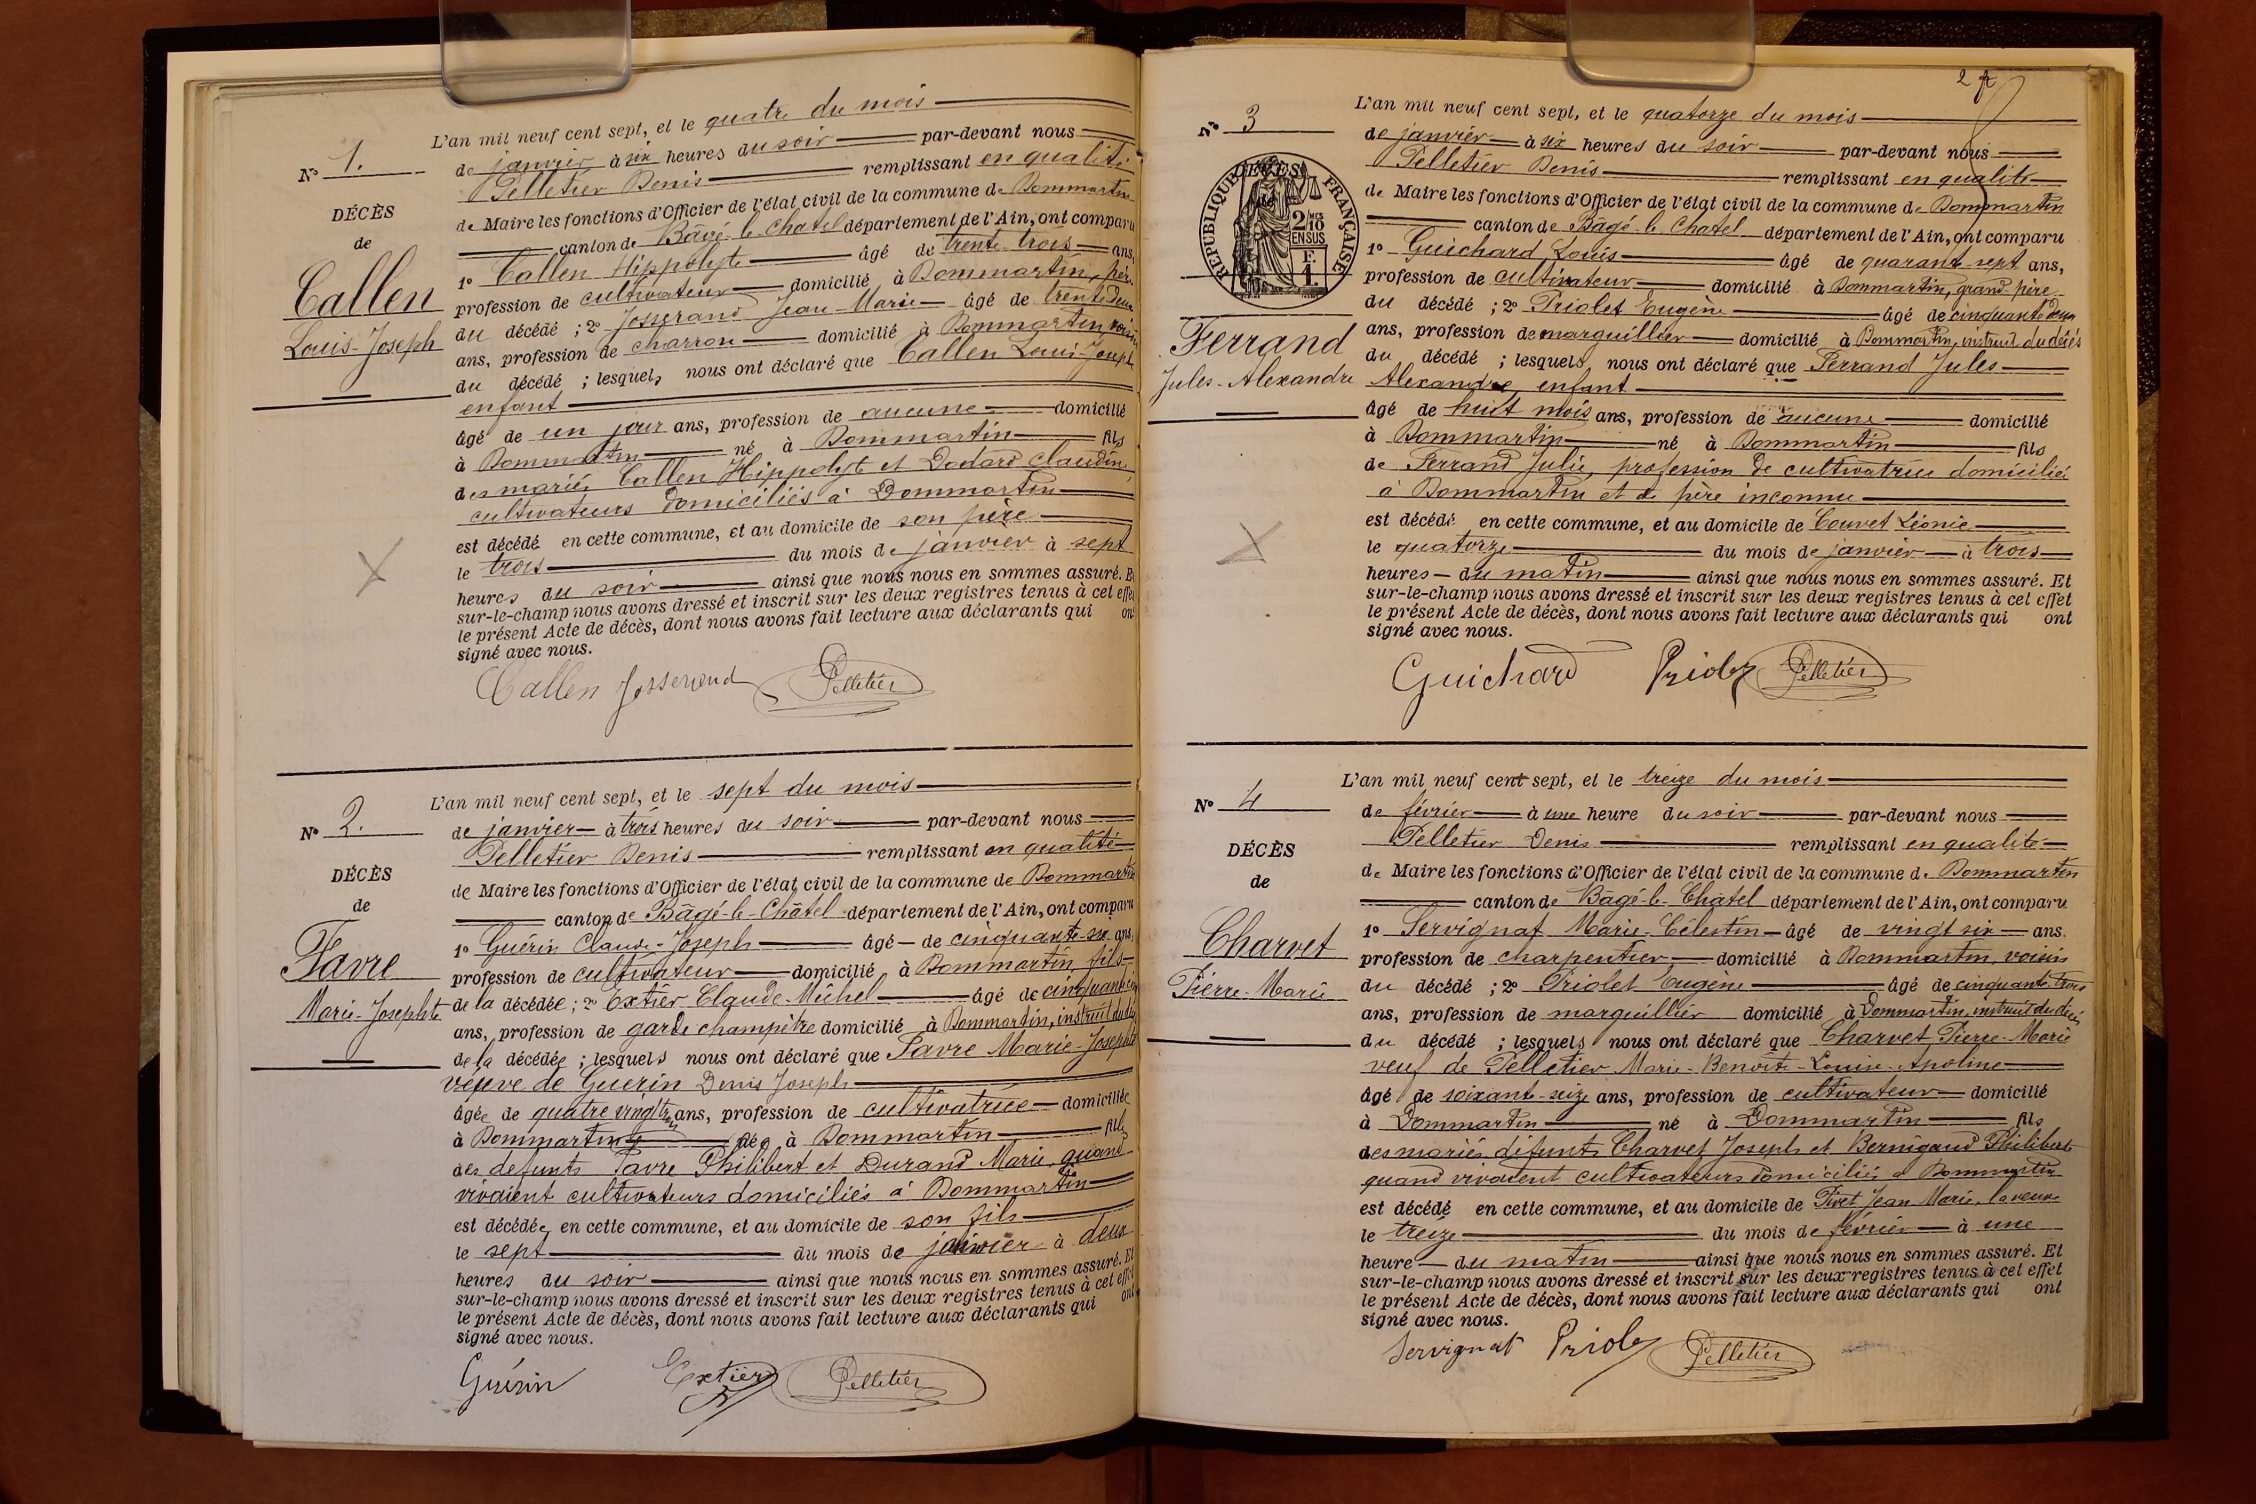 N° 1.
DÉCÈS
de
Callen
Louis-Joseph
L'an mil neuf cent sept, et le quatre du mois
de janvier à six heures du soir par-devant nous
Pelletier Denis remplissant en qualité
de Maire les fonctions d'Officier de l'état civil de la commune de Dommartin
canton de Bâgé-le-Chatel département de l'Ain, ont comparu
1° Callen Hippolyte âgé de trente trois ans,
profession de cultivateur domicilié à Dommartin, père
du décédé ; 2° Josserand Jean-Marie âgé de trente deux
ans, profession de charron domicilié à Dommartin, voisin
du décédé ; lesquels nous ont déclaré que Callen Louis-Joseph
enfant
âgé de un jour ans, profession de aucune domicilié
à Dommartin né à Dommartin fils
des mariés Callen Hippolyte et Dodard Claudine,
cultivateurs domiciliés à Dommartin
est décédé en cette commune, et au domicile de son père
le trois du mois de janvier à sept
heures du soir ainsi que nous nous en sommes assuré. Et
sur-le-champ nous avons dressé et inscrit sur les deux registres tenus à cet effet
le présent Acte de décès, dont nous avons fait lecture aux déclarants qui ont
signé avec nous.
Callen Josserand Pelletier
N° 2.
DÉCÈS
de
Favre
Marie-Josephte
L'an mil neuf cent sept, et le sept du mois
de janvier à trois heures du soir par-devant nous
Pelletier Denis remplissant en qualité
de Maire les fonctions d'Officier de l'état civil de la commune de Dommartin
canton de Bâgé-le-Châtel département de l'Ain, ont comparu
1° Guérin Claude-Joseph âgé de cinquante-six ans,
profession de cultivateur domicilié à Dommartin, fils
de la décédée ; 2° Extier Claude-Michel âgé de cinquante
ans, profession de garde champêtre domicilié à Dommartin, instruit du décès
de la décédée ; lesquels nous ont déclaré que Favre Marie-Josephte
veuve de Guérin Denis Joseph
âgée de quatre vingt ans, profession de cultivatrice domiciliée
à Dommartin née à Dommartin fille
des défunts Favre Philibert et Durand Marie, quand
vivaient cultivateurs domiciliés à Dommartin
est décédée en cette commune, et au domicile de son fils
le sept du mois de janvier à deux
heures du soir ainsi que nous nous en sommes assuré. Et
sur-le-champ nous avons dressé et inscrit sur les deux registres tenus à cet effet
le présent Acte de décès, dont nous avons fait lecture aux déclarants qui ont
signé avec nous.
Guérin Extier Pelletier
2
N° 3
DÉCÈS
RÉPUBLIQUE FRANÇAISE
2 MES
10
EN SUS
F.
1.
Ferrand
Jules-Alexandre
L'an mil neuf cent sept, et le quatorze du mois
de janvier à six heures du soir par-devant nous
Pelletier Denis remplissant en qualité
de Maire les fonctions d'Officier de l'état civil de la commune de Dommartin
canton de Bâgé-le-Chatel département de l'Ain, ont comparu
1° Guichard Louis âgé de quarante-sept ans,
profession de cultivateur domicilié à Dommartin, grand-père
du décédé ; 2° Priolet Eugène âgé de cinquante deux
ans, profession de marguillier domicilié à Dommartin, instruit du décès
du décédé ; lesquels nous ont déclaré que Ferrand Jules
Alexandre enfant
âgé de huit mois ans, profession de aucune domicilié
à Dommartin né à Dommartin fils
de Ferrand Julie, profession de cultivatrice domiciliée
à Dommartin et de père inconnu
est décédé en cette commune, et au domicile de Couvet Léonie
le quatorze du mois de janvier à trois
heures du matin ainsi que nous nous en sommes assuré. Et
sur-le-champ nous avons dressé et inscrit sur les deux registres tenus à cet effet
le présent Acte de décès, dont nous avons fait lecture aux déclarants qui ont
signé avec nous.
Guichard Priolet Pelletier
N° 4
DÉCÈS
de
Charvet
Pierre-Marie
L'an mil neuf cent sept, et le treize du mois
de février à une heure du soir par-devant nous
Pelletier Denis remplissant en qualité
de Maire les fonctions d'Officier de l'état civil de la commune de Dommartin
canton de Bâgé-le-Chatel département de l'Ain, ont comparu
1° Servignat Marie-Célestin âgé de vingt six ans.
profession de charpentier domicilié à Dommartin, voisin
du décédé ; 2° Priolet Eugène âgé de cinquante-trois
ans, profession de marguillier domicilié à Dommartin, instruit du décès
du décédé ; lesquels nous ont déclaré que Charvet Pierre-Marie
veuf de Pelletier Marie-Benoîte-Louise-Apoline
âgé de soixante-seize ans, profession de cultivateur domicilié
à Dommartin né à Dommartin fils
des mariés défunts Charvet Joseph et Bernigaud Philiberte
quand vivaient cultivateurs domiciliés à Dommartin
est décédé en cette commune, et au domicile de Pivet Jean Marie, la veuve
le treize du mois de février à une
heure du matin ainsi que nous nous en sommes assuré. Et
sur-le-champ nous avons dressé et inscrit sur les deux registres tenus à cet effet
le présent Acte de décès, dont nous avons fait lecture aux déclarants qui ont
signé avec nous.
Servignat Priolet Pelletier